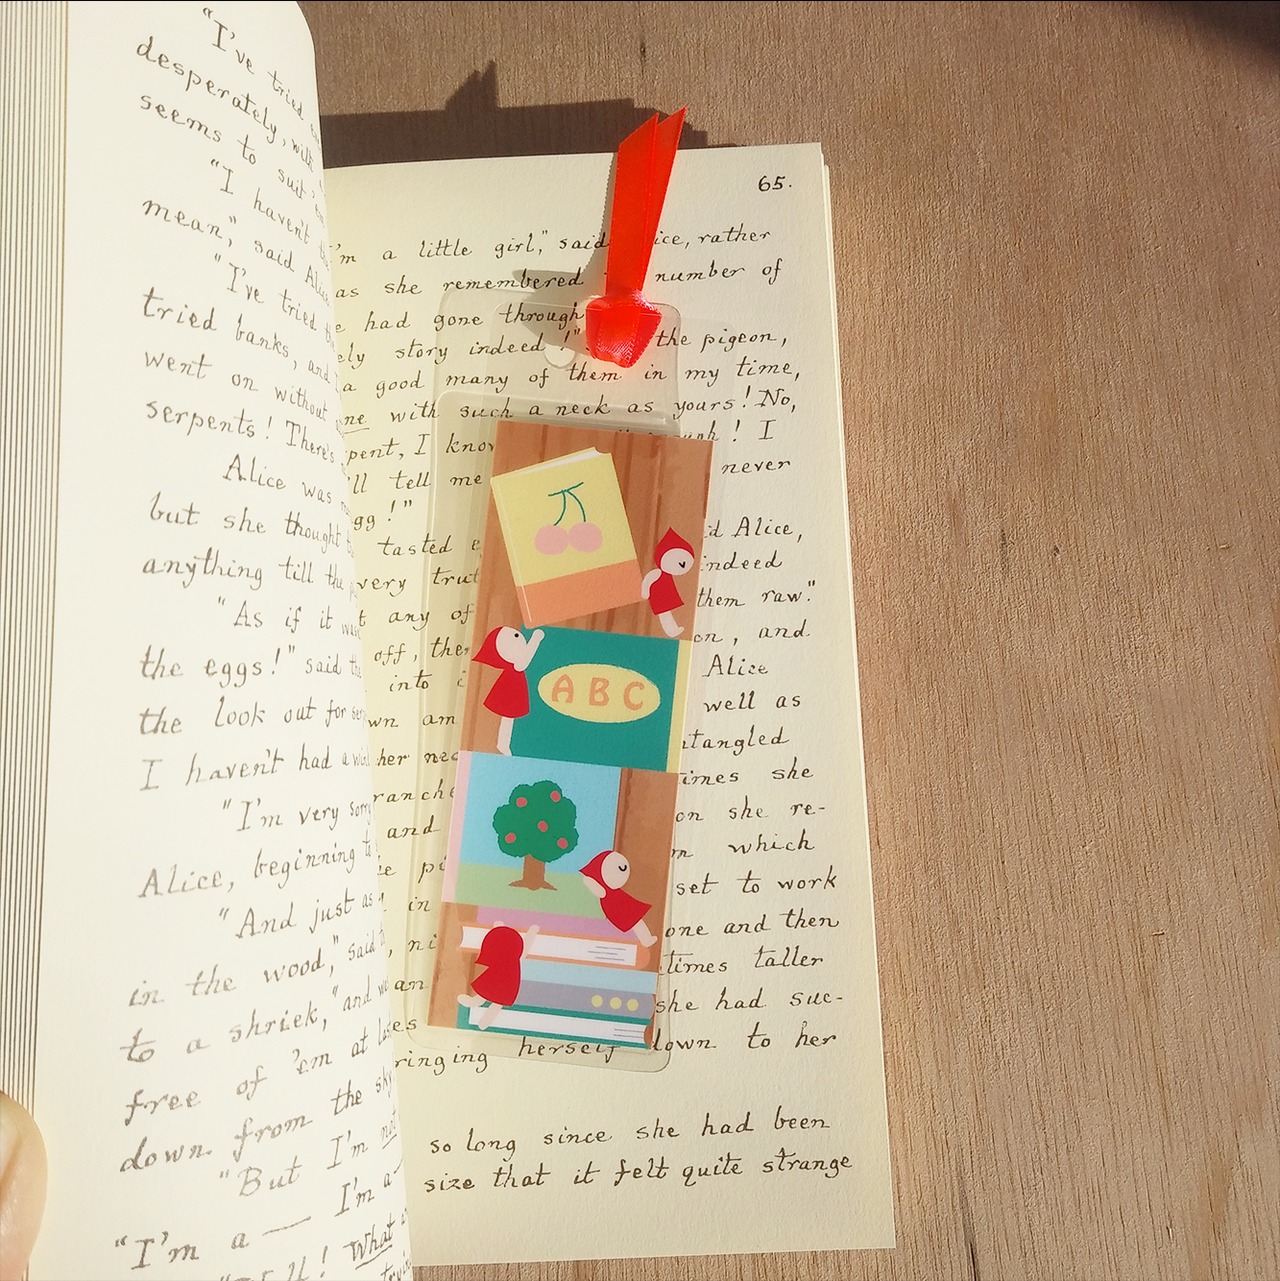 "I've tried
desperately, with
seems to suit 'em
"I haven't the
mean," said Alice
"I've tried the
tried banks, and
went on without
serpents! There's
Alice was
but she thought
anything till the
"As if it was
the eggs!" said the
the look out for
I haven't had a
"I'm very sorry
Alice, beginning to
"And just as
in the wood," said
to a shriek," and
free of 'em at
down from the sky
"But I'm not
"I'm a — I'm a —
What
65.
I'm a little girl," said rather
as she remembered number of
had gone through
story indeed!" the pigeon,
a good many of them in my time,
with such a neck as yours! No,
I know ! I
tell me never
!"
tasted Alice,
very indeed
any of them raw."
off, and
into Alice
well as
her
times she
on she re-
and which
set to work
in one and then
taller
she had suc-
herself down to her
so long since she had been
size that it felt quite strange
ABC